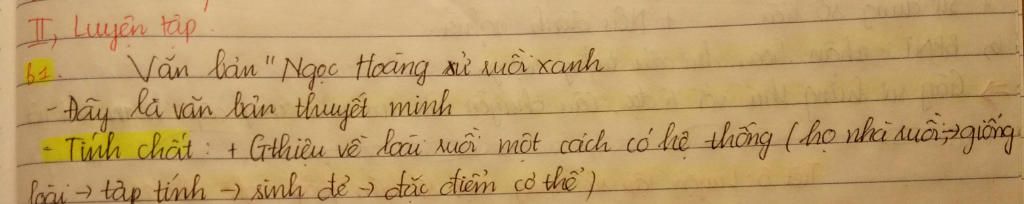 II, Luyện tập.
b1. Văn bản "Ngọc Hoàng xử ruồi xanh
- Đây là văn bản thuyết minh
- Tính chất: + Gthiệu về loài ruồi một cách có hệ thống (họ nhà ruồi, → giống
loài → tập tính → sinh đẻ → đặc điểm cơ thể)